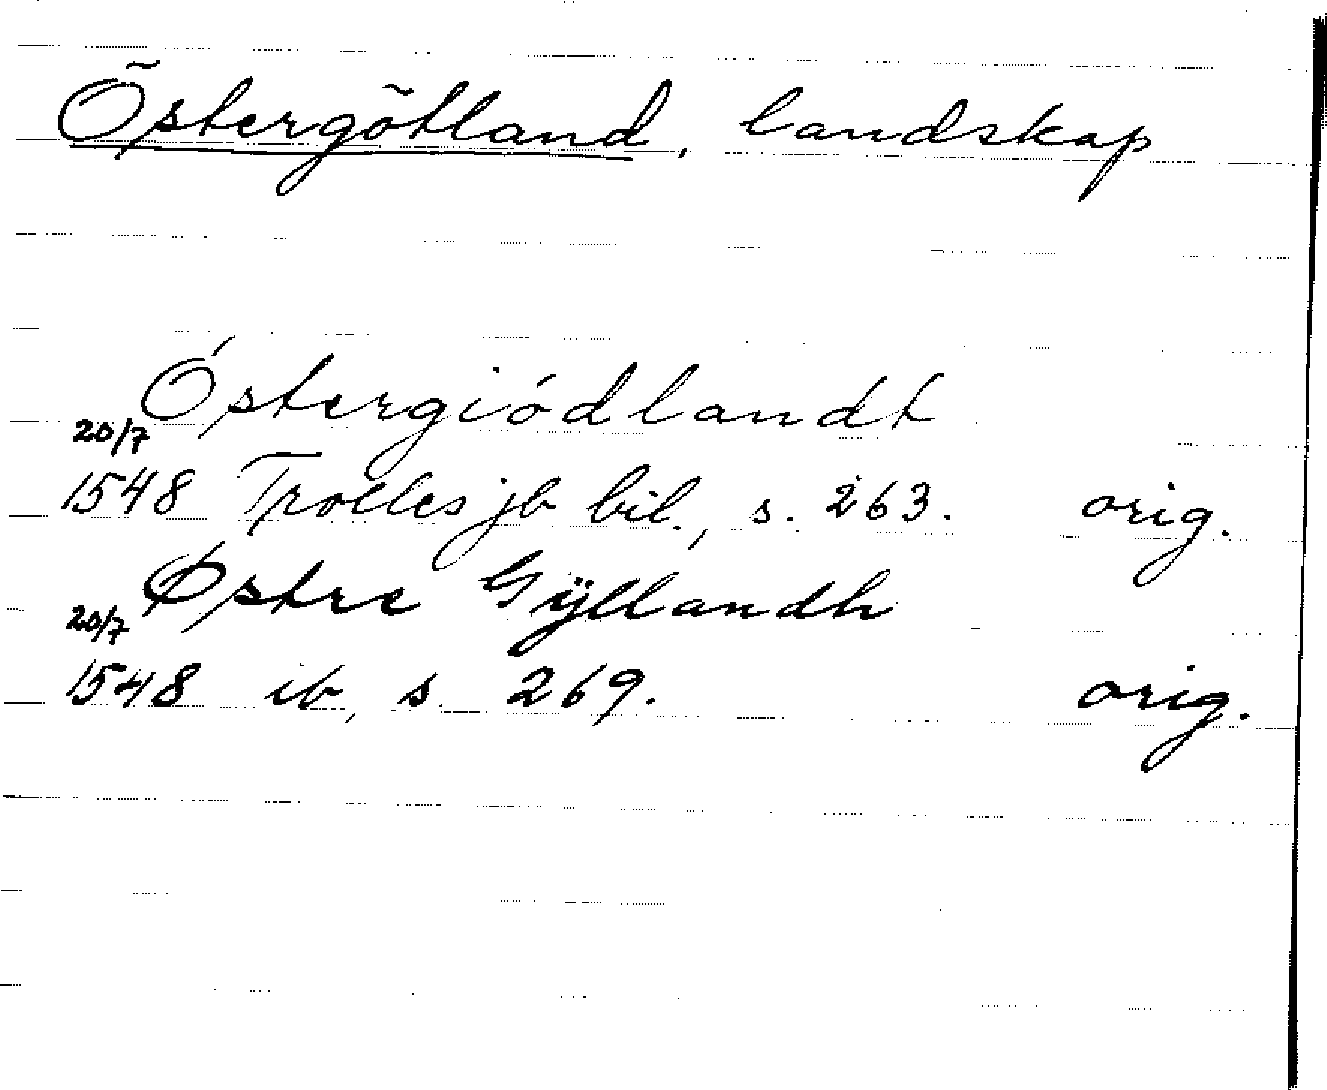 Östergötland, landskap
Óstergiódlandt
20/7
1548 Trolles jb bil., s. 263. orig.
Østre Gÿllandh
20/7
1548 ib, s. 269. orig.